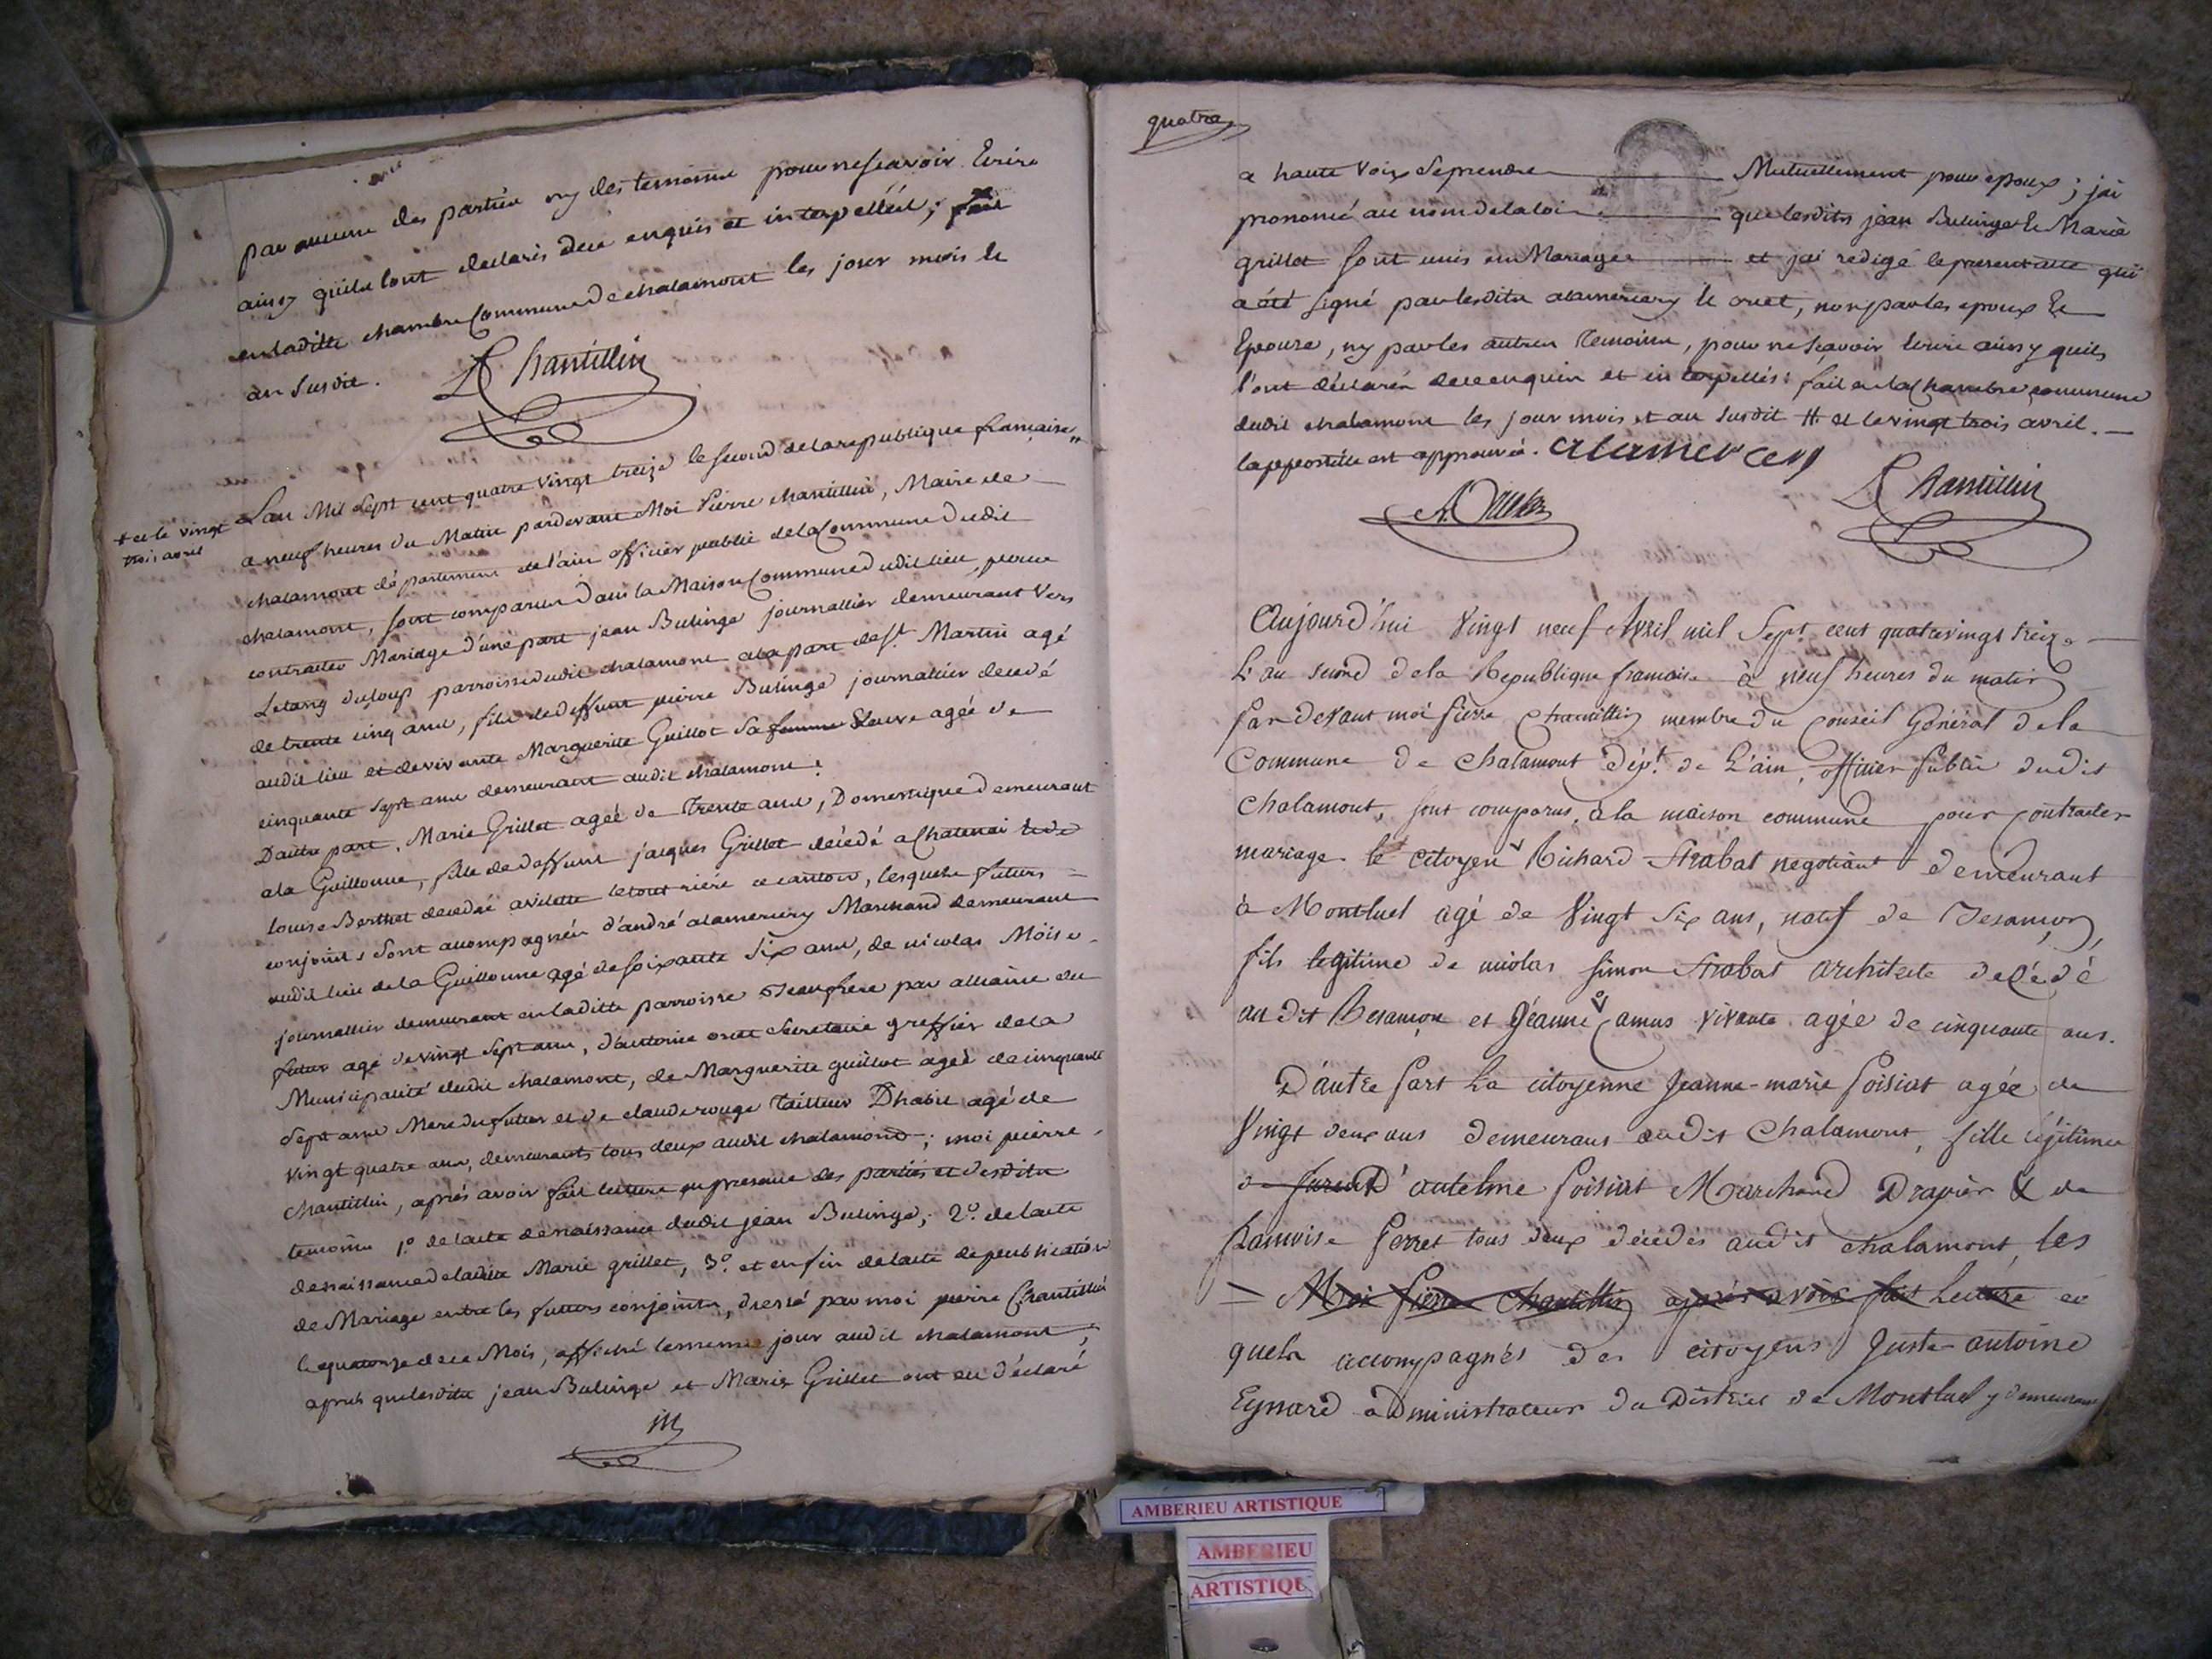 par aucune des parties ny des temoins pour ne scavoir Ecrire
ainsy quils lont declarés de ce enquis et interpellés; fait
en laditte chambre Commune de chalamont les jour mois et
an susdit.
P Chantillin
+ et le vingt
trois avril
Lan Mil sept cent quatre vingt treize le second de la republique française
a neuf heures du Matin pardevant Moi Pierre chantillin, Maire de
chalamont département de l'ain officier public de la Commune dudit
chalamont, sont comparus dans la Maison Commune dudit lieu, pour
contracter Mariage d'une part jean Bulinge journallier demeurant vers
Letang du loup parroisse dudit chalamont a la part de St. Martin agé
de trente cinq ans, fils de deffunt pierre Bulinge journallier decedé
audit lieu et de vivante Marguerite Guillot Sa femme veuve agée de
cinquante sept ans demeurant audit chalamont.
D'autre part, Marie Grillet agée de Trente ans, Domestique demeurant
a la Guillonne, fille de deffunt jacques Grillet décédé a Chatenai et de
louise Berthet decedée a vilette le tout riére ce canton, lesquels futurs
conjoints sont accompagnés d'andré alamercery Marchand demeurant
audit lieu de la Guillonne agé de soixante six ans, de nicolas Moise
journallier demeurant en laditte parroisse beaufrere par alliance du
futur agé de vingt sept ans, d'antoine oret Secretaire greffier de la
Municipalité dudit chalamont, de Marguerite guillot agée de cinquante
Sept ans Mere du futur et de claude rouge tailleur D'habit agé de
vingt quatre ans, demeurants tous deux audit chalamond; moi pierre
chantillin, aprés avoir fait lecture en presence des parties et desdits
temoins 1º. de lacte de naissance dudit jean Bulinge; 2º. de lacte
de naissance de laditte Marie grillet, 3º. et enfin de lacte de publication
de Mariage entre les futurs conjoints, dressé par moi pierre Chantillin
le quatorze de ce Mois, affiché le meme jour audit chalamont;
aprés que lesdits jean Bulinge et Marie Grillet ont eu déclaré
quatre
a haute voix se prendre Mutuellement pour epoux; jai
prononcé au nom de la loi que lesdits jean Bulinge et Marie
grillet sont unis en Mariage et jai redigé le present acte qui
a été signé par lesdits alamercery et oret, non par les epoux et
Epouse, ny par les autres Temoins, pour ne scavoir ecrire ainsy quils
l'ont déclarés de ce enquis et interpellés: fait en la Chambre commune
dudit chalamont les jour mois et an susdit #. et le vingt trois avril.
lappostille est approuvée. alamercery
P Chantillin
Aujourd'hui Vingt neuf Avril mil Sept cent quatre vingt treize
L'an second de la Republique française à neuf heures du matin
Par devant moi Pierre Chantillin membre du Conseil Général de la
Commune de Chalamont Dépt. de L'ain, officier Public dudit
Chalamont, sont comparus, à la maison commune pour contracter
mariage. le citoyen Richard Strabat negotiant demeurant
à Montluel agé de Vingt Six ans, natif de Besançon,
fils legitime de nicolas simon Strabat architecte décédé
au dit Besançon et Jeanne Camus vivante agée de cinquante ans.
D'autre Part La citoyenne Jeanne-marie Poisiat agée de
Vingt deux ans demeurant audit Chalamont, fille légitime
d'antelme Poisiat Marchand Drapier & de
françoise Perret tous deux décédés audit chalamont, les
Moi Pierre Chantillin après avoir fait Lecture
quels accompagnés des citoyens Juste-antoine
Eynard administrateur du District de Montluel y demeurant
AMBERIEU ARTISTIQUE
AMBERIEU
ARTISTIQUE